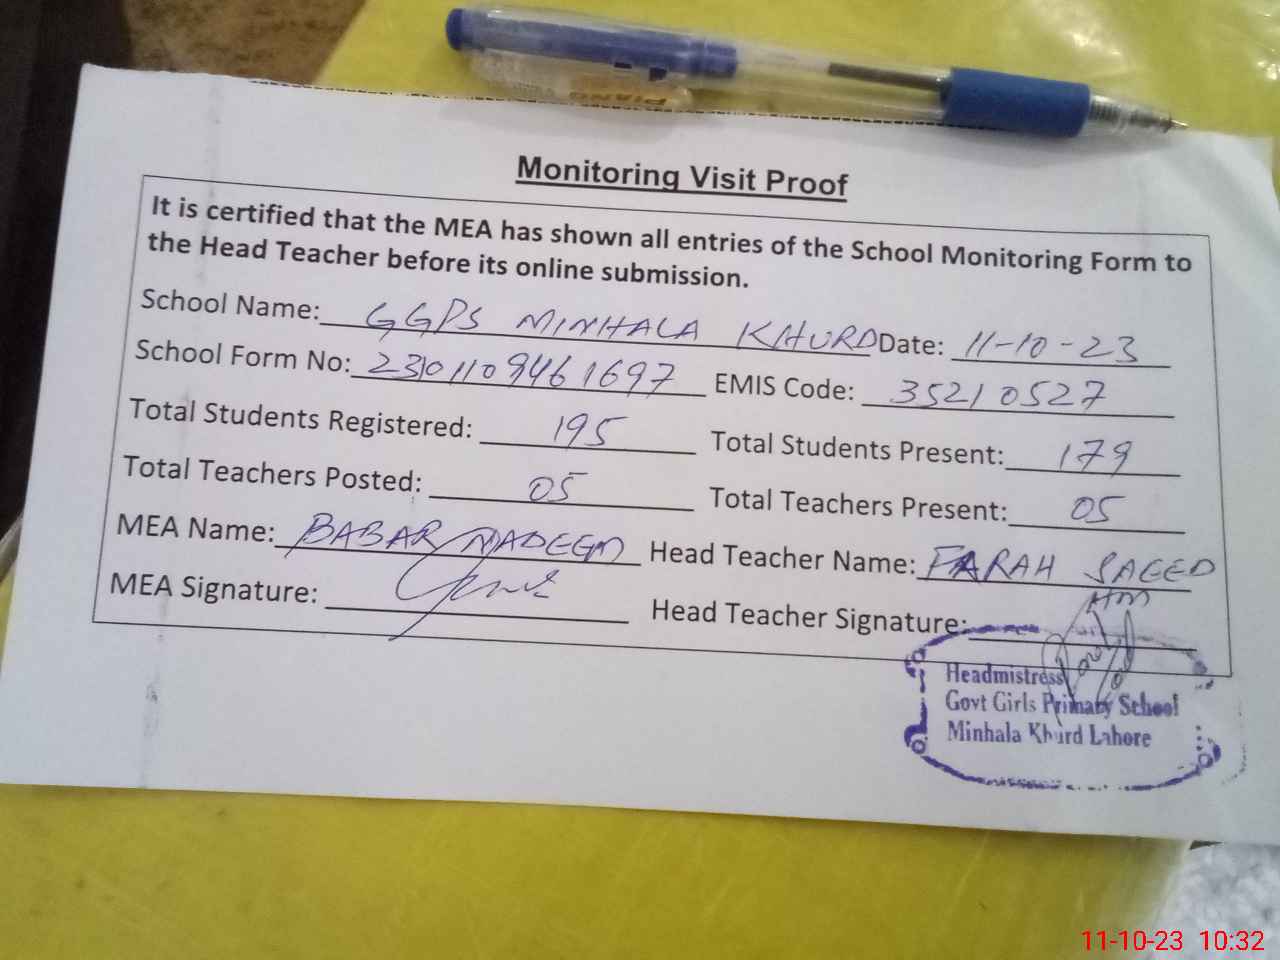 PIANO
Monitoring Visit Proof
It is certified that the MEA has shown all entries of the School Monitoring Form to
the Head Teacher before its online submission.
School Name: GGPS MINHALA KHURD Date: 11-10-23
School Form No: 23101109461697 EMIS Code: 35210527
Total Students Registered: 195 Total Students Present: 179
Total Teachers Posted: 05 Total Teachers Present: 05
MEA Name: BABAR NADEEM Head Teacher Name: FARAH SAEED
MEA Signature: Head Teacher Signature:
Headmistress
Govt Girls Primary School
Minhala Khurd Lahore
11-10-23 10:32